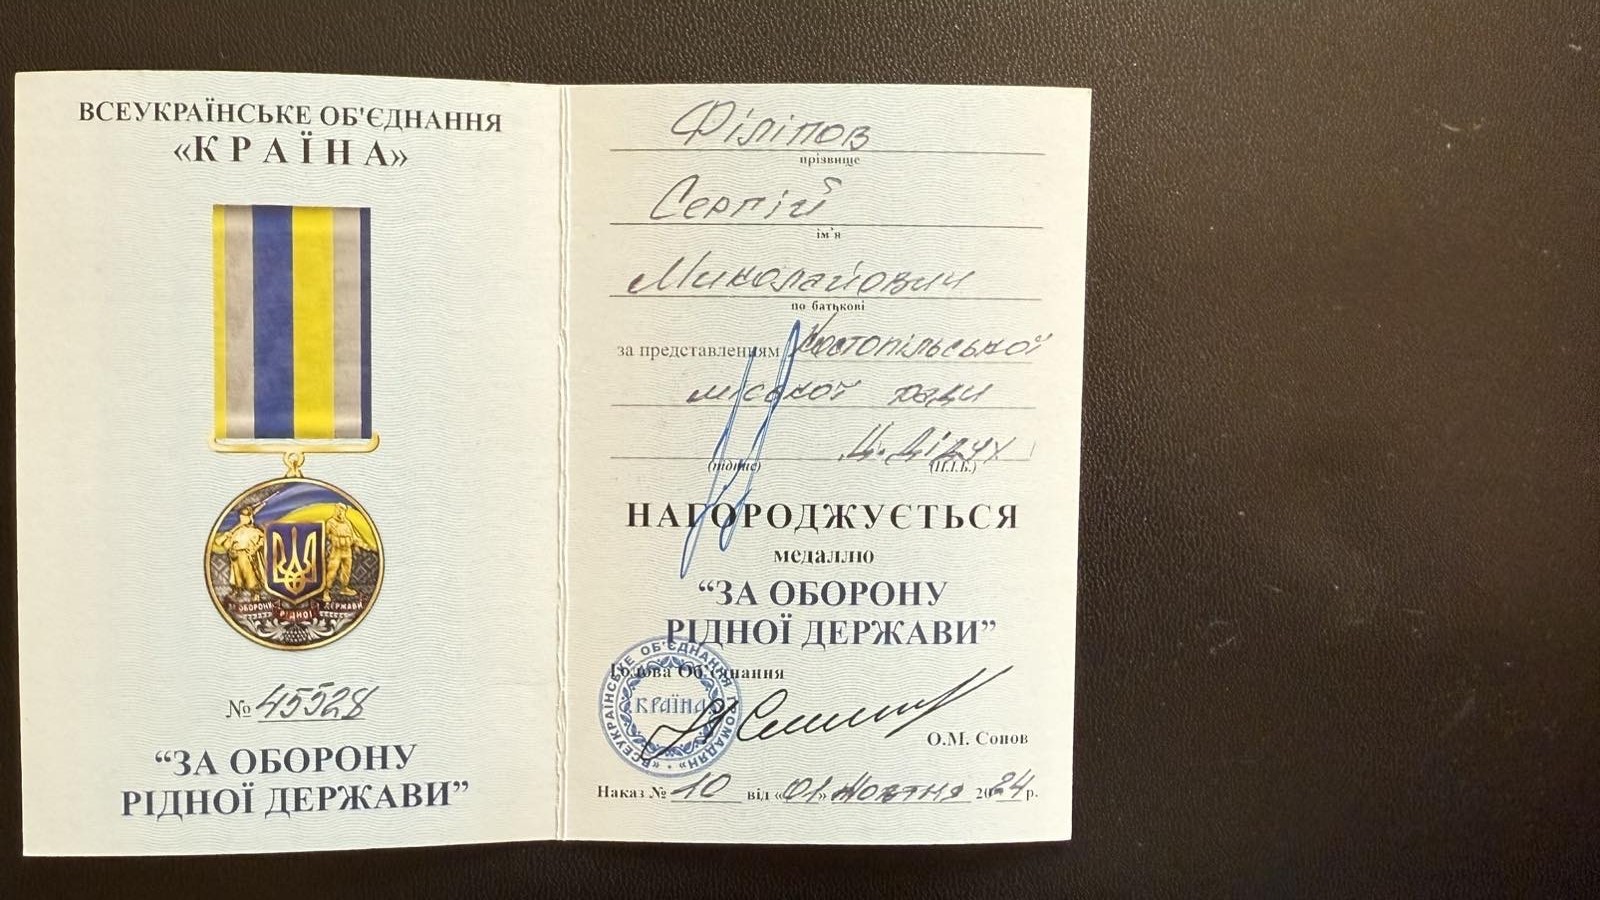 ВСЕУКРАЇНСЬКЕ ОБ'ЄДНАННЯ
«КРАЇНА»
ОБОРОНУ РІДНОЇ ДЕРЖАВИ
№ 45528
“ЗА ОБОРОНУ
РІДНОЇ ДЕРЖАВИ”
Філіпов
прізвище
Сергій
ім'я
Миколайович
по батькові
за представленням Костопільської
міської ради
Ц. Дідух
(підпис) (П.І.Б.)
НАГОРОДЖУЄТЬСЯ
медаллю
“ЗА ОБОРОНУ
РІДНОЇ ДЕРЖАВИ”
Голова Об'єднання
«ВСЕУКРАЇНСЬКЕ ОБ'ЄДНАННЯ ГРОМАДЯН»
КРАЇНА
О.М. Сопов
Наказ № 10 від «01» жовтня 2024р.